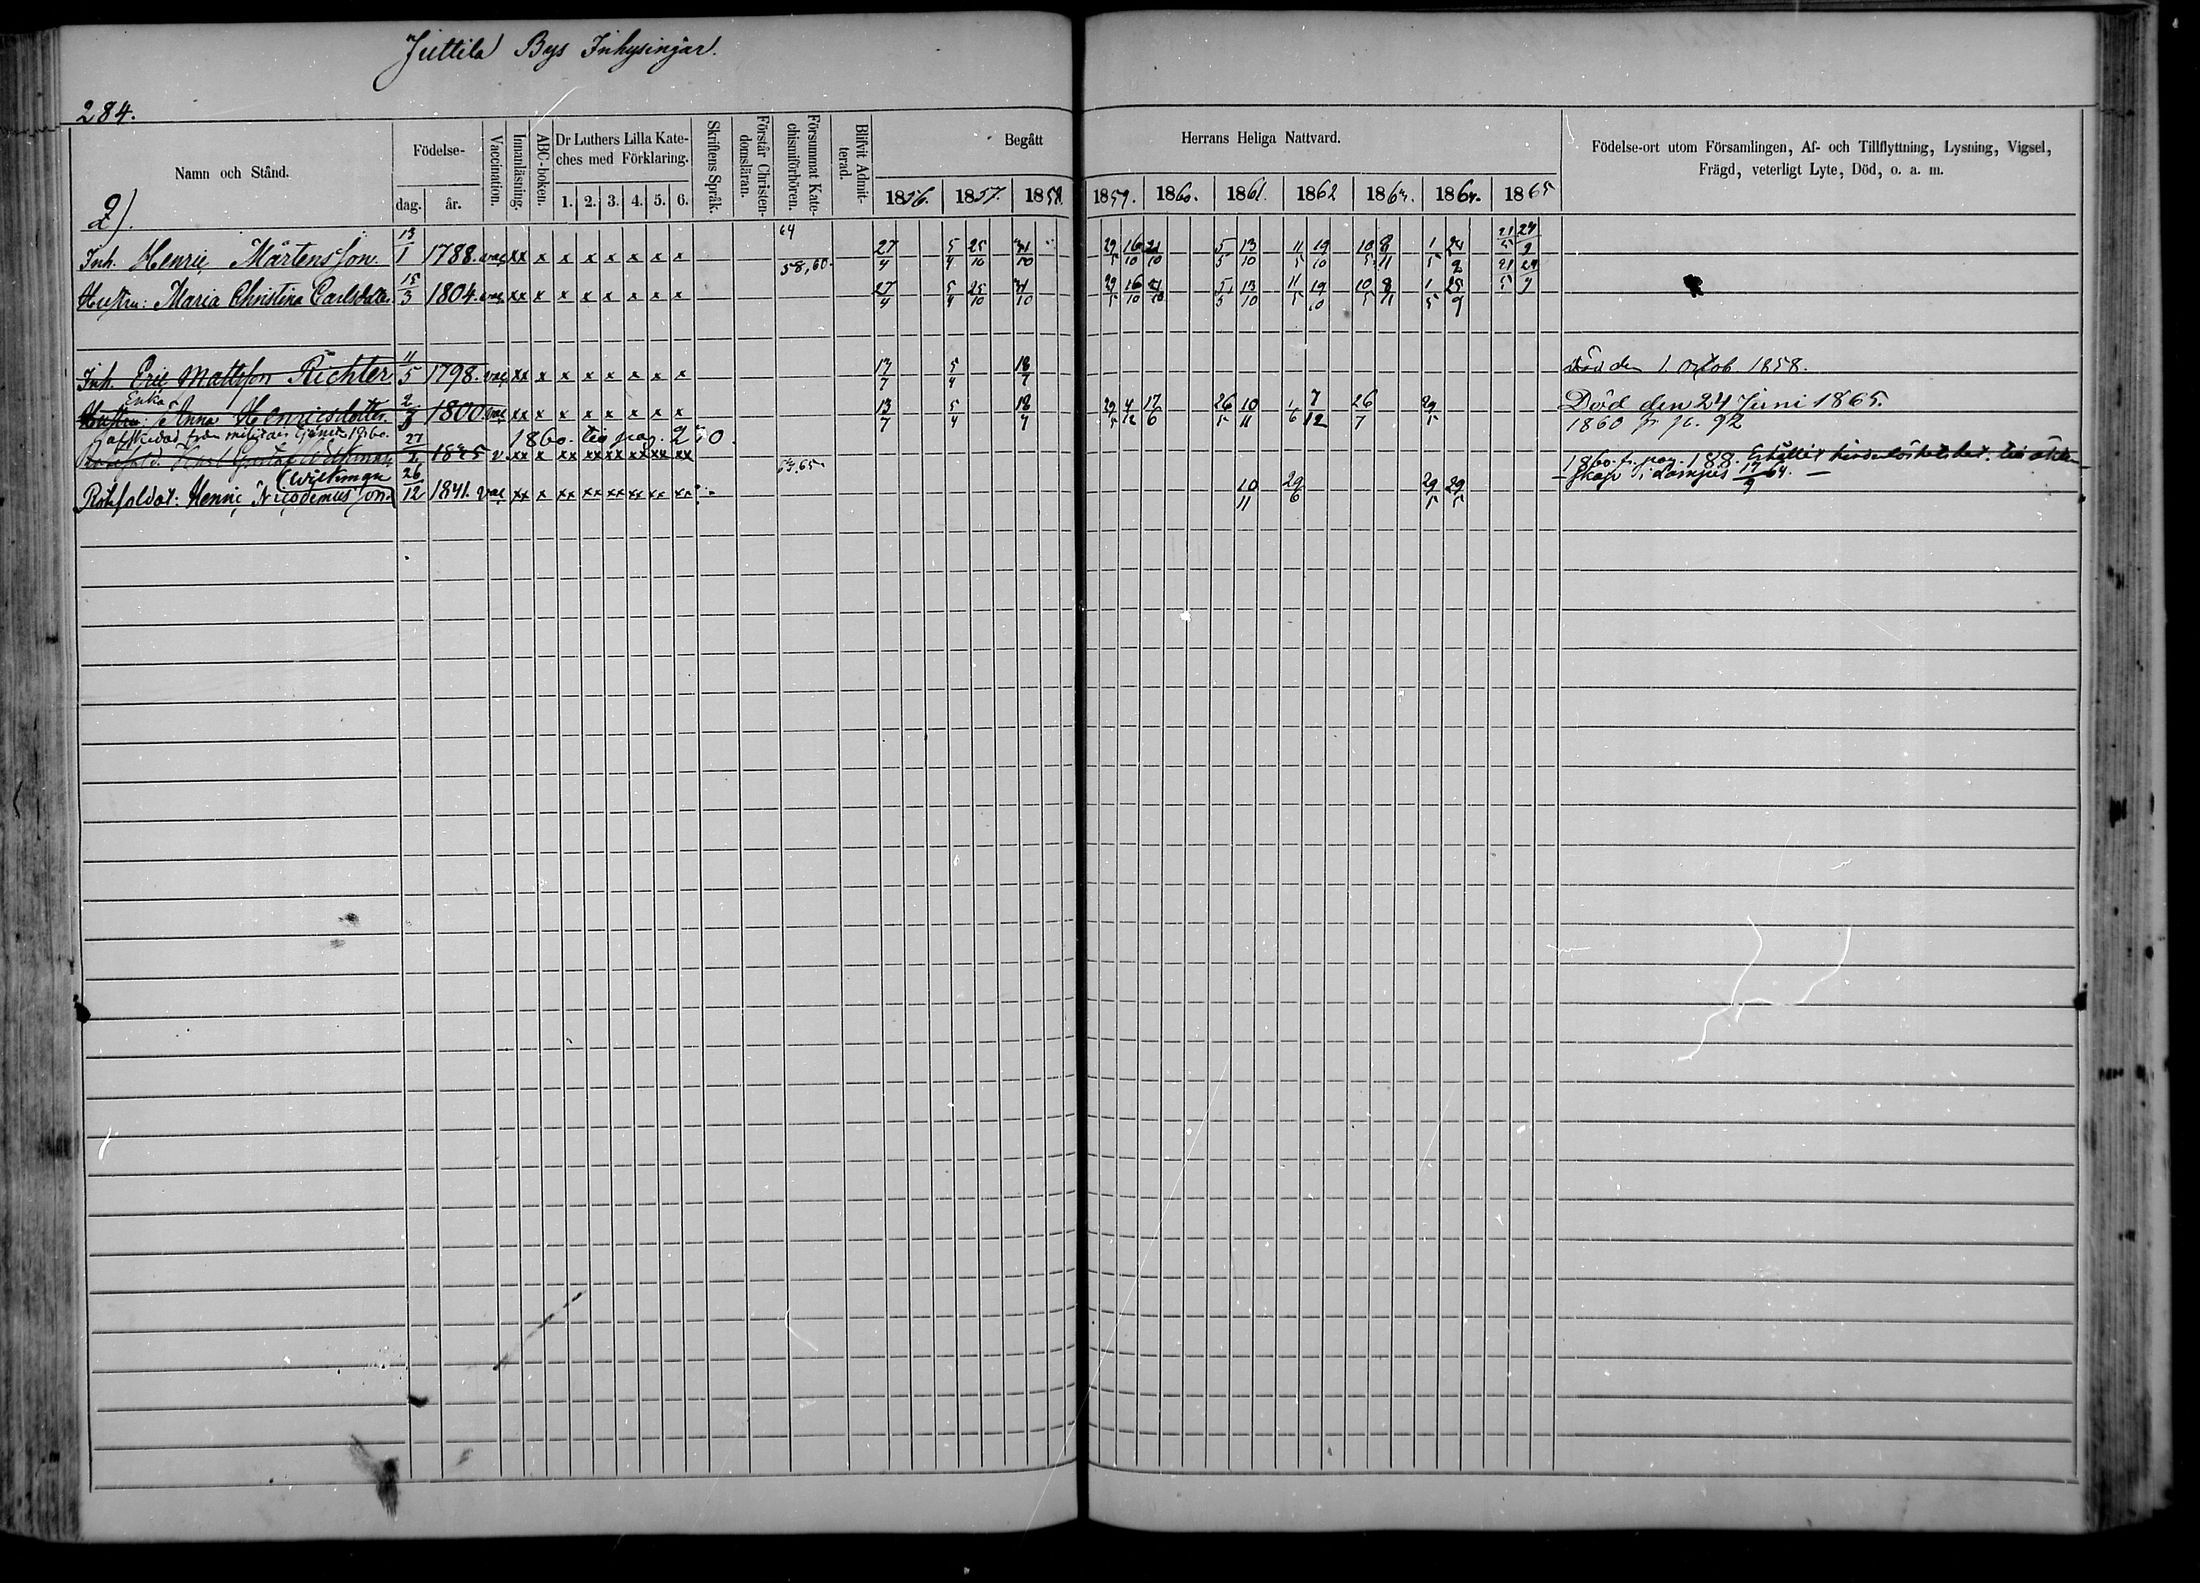 Juttila Bys Inhysingar.
284.
Namn och Stånd.
Födelse-
dag. år.
Vaccination.
Innanläsning.
ABC-boken.
Dr Luthers Lilla Kate-
ches med Förklaring.
1. 2. 3. 4. 5. 6.
Skriftens Språk.
Förstår Christen-
domsläran.
Försummat Kate-
chismiförhören.
Blifvit Admit-
terad.
Begått Herrans Heliga Nattvard.
1856. 1857. 1858 1859. 1860. 1861. 1862 1863. 1864. 1865
Födelse-ort utom Församlingen, Af- och Tillflyttning, Lysning, Vigsel,
Frägd, veterligt Lyte, Död, o. a. m.
2).
64
Inh. Henric Mårtensson 13/1 1788. vac xx x x x x x x x 27/4 5/4 25/10 31/10 29/5 16/10 21/10 5/5 13/10 11/5 19/10 10/5 8/11 1/5 21/5 24/9
58, 60.
Hustru: Maria Christina Carlsdotter 15/3 1804. vac xx x x x x x x x 27/4 5/4 25/10 31/10 29/5 16/10 21/10 5/5 13/10 11/5 19/10 10/5 8/11 1/5 25/9 21/5 24/9
Inh. Eric Mattsson Richter 11/5 1798. vac xx x x x x x x x 17/7 5/4 18/7 död den 1 octob. 1858.
Enka
Hustru: Anna Henricsdotter 1800 vac xx x x x x x x x 13/7 5/4 18/7 29/5 17/6 26/5 10/11 1/6 7/12 26/7 29/5 Död den 24 Juni 1865.
afskedad från militair tjenst 1860. 1860. till pag. 250. 1860 fr. p. 92
27/2 1835 v. xx x xx xx xx xx xx xx
63. 65. 1860. fr. pag. 188. Erhållit till äkten-
(Wilkman skap i Lampis 17/9 64.
Rotesoldat: Henric Nicodemusson 26/12 1841. vac xx x xx xx xx xx xx xx 10/11 29/6 29/5 29/5